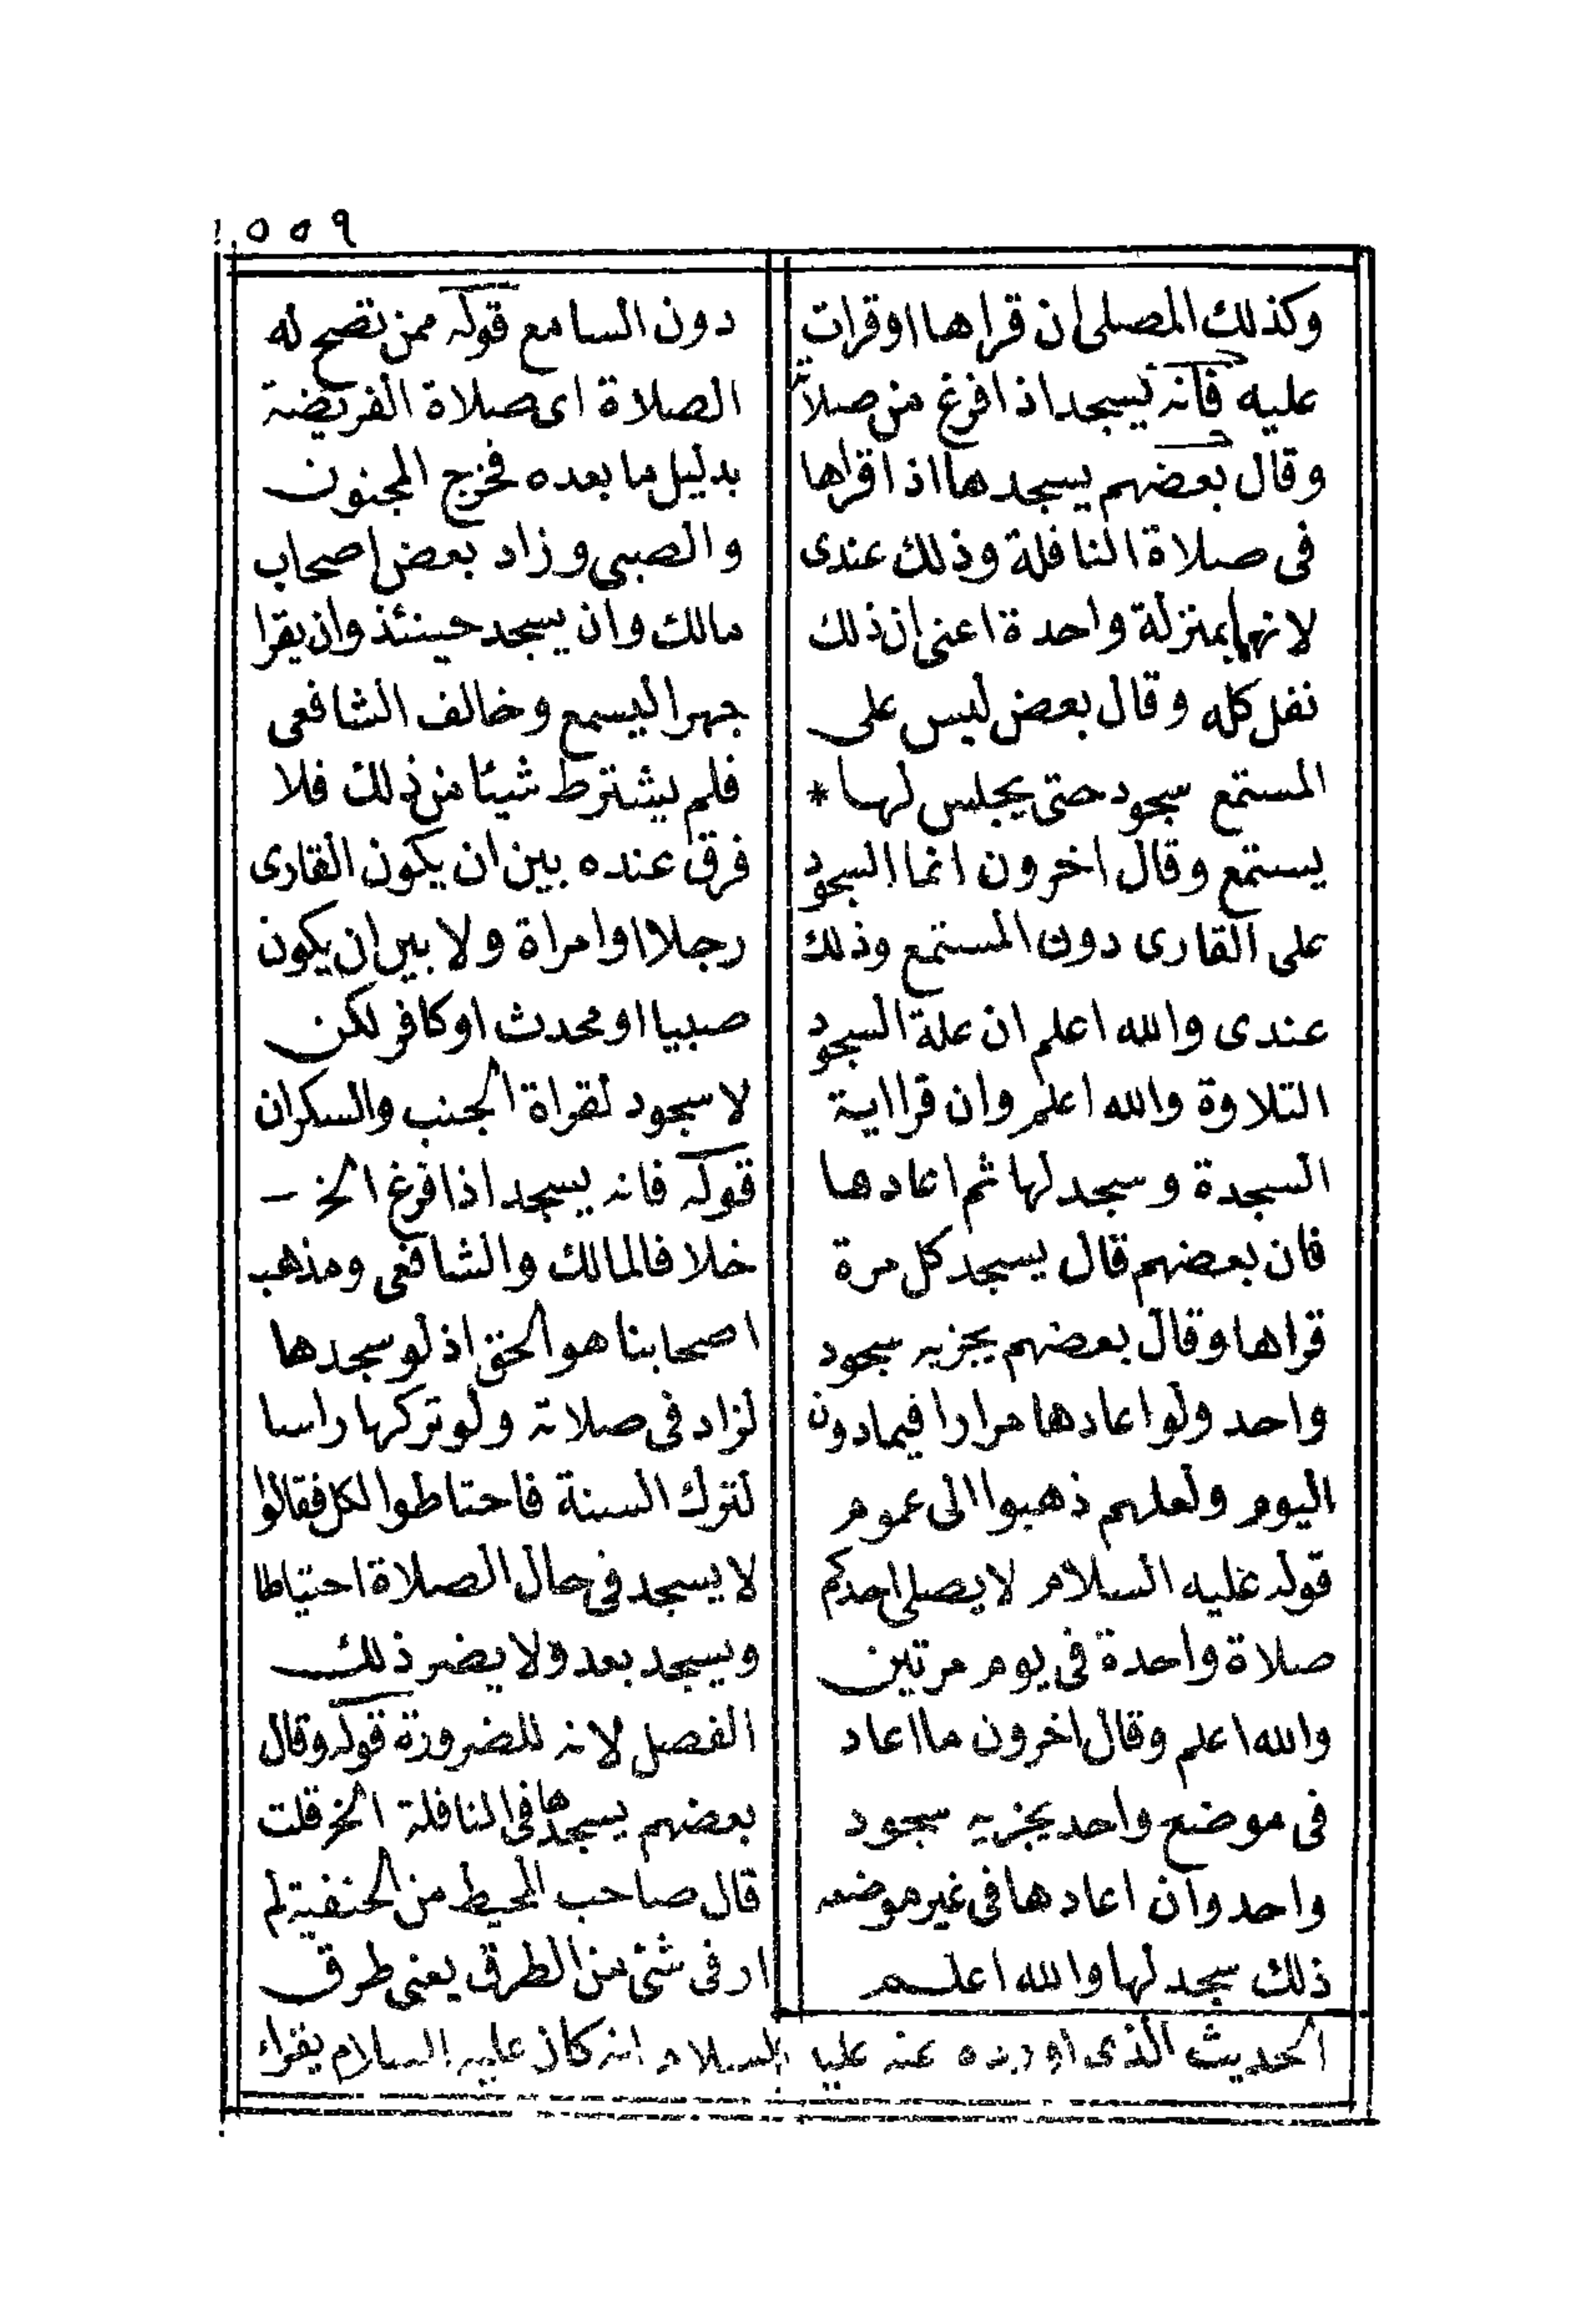 ٥٥٩
وكذلك المصلى ان قراها اوقرات
عليه فانه يسجد اذا فرغ من صلاته
وقال بعضهم يسجدها اذا قراها
فى صلاة النافلة وذلك عندى
لانها بمنزلة واحدة اعنى ان ذلك
نفل كله وقال بعض ليس على
المستمع سجود حتى يجلس لها *
يستمع وقال اخرون انما السجود
على القارى دون المستمع وذلك
عندى والله اعلم ان علة السجود
التلاوة والله اعلم وان قرا اية
السجدة وسجد لها ثم اعادها
فان بعضهم قال يسجد كل مرة
قراها وقال بعضهم يجزيه سجود
واحد ولو اعادها مرارا فيما دون
اليوم ولعلهم ذهبوا الى عموم
قوله عليه السلام لا يصلى احدكم
صلاة واحدة فى يوم مرتين
والله اعلم وقال اخرون ما اعاد
فى موضع واحد يجزيه سجود
واحد وان اعادها فى غير موضعه
ذلك سجد لها والله اعلم
دون السامع قوله ممن تصح له
الصلاة اى صلاة الفريضة
بدليل ما بعده فخرج المجنون
والصبى وزاد بعض اصحاب
مالك وان يسجد حينئذ وان يقرا
جهرا ليسمع وخالف الشافعى
فلم يشترط شيئا من ذلك فلا
فرق عنده بين ان يكون القارى
رجلا او امراة ولا بين ان يكون
صبيا او محدث او كافر لكن
لا سجود لقراة الجنب والسكران
قوله فانه يسجد اذا فرغ الخ
خلافا لمالك والشافعى ومذهب
اصحابنا هو الحق اذ لو سجدها
لزاد فى صلاته ولو تركها راسا
لترك السنة فاحتاطوا لكل فقالوا
لا يسجد فى حال الصلاة احتياطا
ويسجد بعد ولا يضر ذلك
الفصل لانه للضرورة قوله وقال
بعضهم يسجدها فى النافلة الخ قلت
قال صاحب المحيط من الحنفية لم
ار فى شئ من الطرق يعنى طرق
الحديث الذى اورده عنه عليه السلام انه كان عليه السلام يقراء